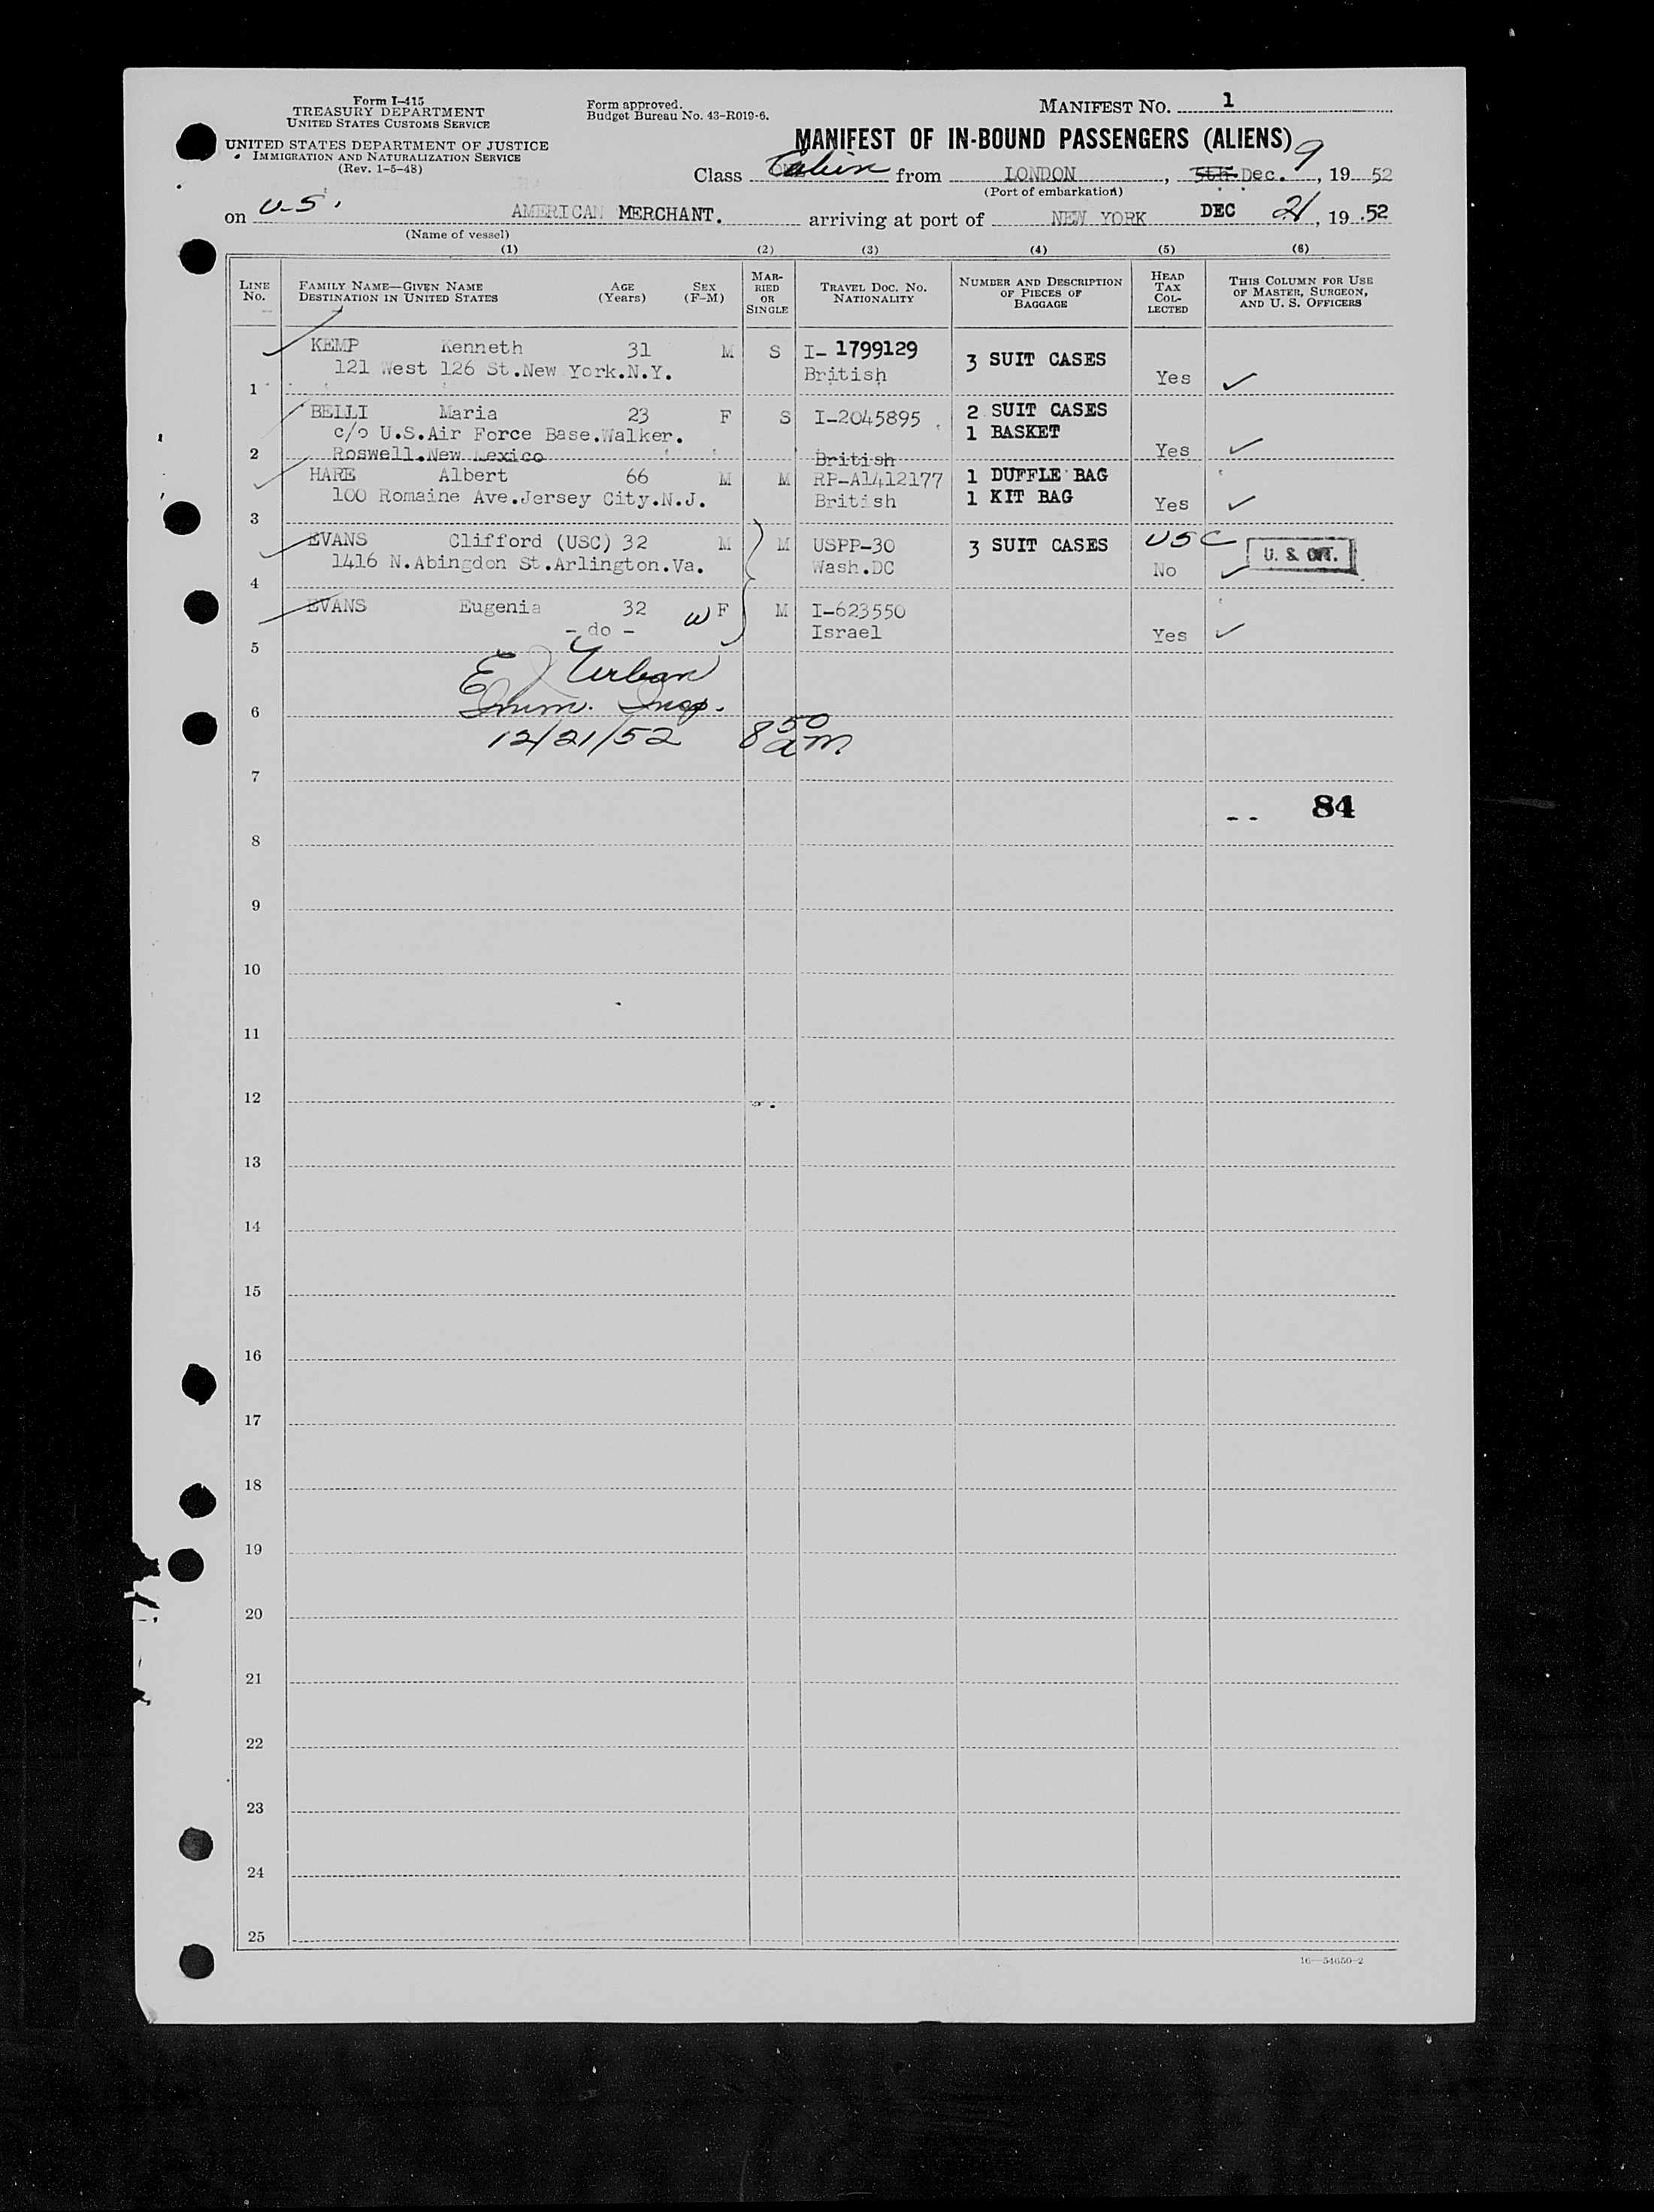 Form I-415
TREASURY DEPARTMENT
UNITED STATES CUSTOMS SERVICE
UNITED STATES DEPARTMENT OF JUSTICE
IMMIGRATION AND NATURALIZATION SERVICE
(Rev. 1-5-48)
Form approved.
Budget Bureau No. 43-R019-6.
MANIFEST NO. 1
MANIFEST OF IN-BOUND PASSENGERS (ALIENS)
Class Cabin from LONDON, 5th Dec. 9, 1952
(Port of embarkation)
on U.S. AMERICAN MERCHANT. arriving at port of NEW YORK DEC 21, 19 52
(Name of vessel)
(1) (2) (3) (4) (5) (6)
LINE No.
FAMILY NAME—GIVEN NAME
DESTINATION IN UNITED STATES
AGE (Years)
SEX (F-M)
MARRIED OR SINGLE
TRAVEL DOC. NO.
NATIONALITY
NUMBER AND DESCRIPTION OF PIECES OF BAGGAGE
HEAD TAX COLLECTED
THIS COLUMN FOR USE OF MASTER, SURGEON, AND U. S. OFFICERS
KEMP Kenneth 31 M S I- 1799129 3 SUIT CASES
121 West 126 St.New York.N.Y. British Yes
1
BELLI Maria 23 F S I-2045895 2 SUIT CASES
c/o U.S.Air Force Base.Walker. 1 BASKET
2 Roswell.New Mexico British Yes
HARE Albert 66 M M RP-A1412177 1 DUFFLE BAG
100 Romaine Ave.Jersey City.N.J. British 1 KIT BAG Yes
3
EVANS Clifford (USC) 32 M M USPP-30 3 SUIT CASES USC U. S. CIT.
1416 N.Abingdon St.Arlington.Va. Wash.DC No
4
EVANS Eugenia 32 W F M I-623550
- do - Israel Yes
5
E J Urban
6 Imm. Insp.
12/21/52 8 50 am
7
-- 84
8
9
10
11
12
13
14
15
16
17
18
19
20
21
22
23
24
25
16—54650-2